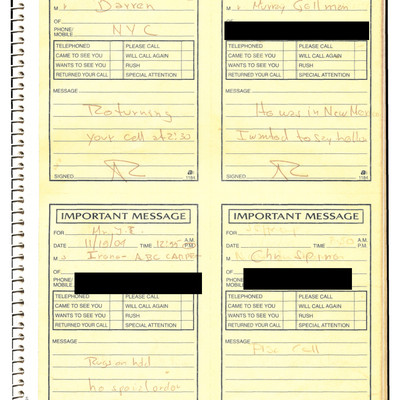 M Darren
OF
PHONE/
MOBILE NYC
TELEPHONED PLEASE CALL
CAME TO SEE YOU WILL CALL AGAIN
WANTS TO SEE YOU RUSH
RETURNED YOUR CALL SPECIAL ATTENTION
MESSAGE
Returning
your call at 2:30
SIGNED 1184
M
OF
TELEPHONED PLEASE CALL
CAME TO SEE YOU WILL CALL AGAIN
WANTS TO SEE YOU RUSH
RETURNED YOUR CALL SPECIAL ATTENTION
MESSAGE
He was in New
I wanted to say hello
SIGNED 1184
IMPORTANT MESSAGE
FOR Mr. J.E.
DATE TIME A.M.
P.M.
M ABC
OF
PHONE/
MOBILE
TELEPHONED PLEASE CALL
CAME TO SEE YOU WILL CALL AGAIN
WANTS TO SEE YOU RUSH
RETURNED YOUR CALL SPECIAL ATTENTION
MESSAGE
IMPORTANT MESSAGE
FOR
DATE TIME A.M.
P.M.
M
OF
PHONE/
MOBILE
TELEPHONED PLEASE CALL
CAME TO SEE YOU WILL CALL AGAIN
WANTS TO SEE YOU RUSH
RETURNED YOUR CALL SPECIAL ATTENTION
MESSAGE
Call